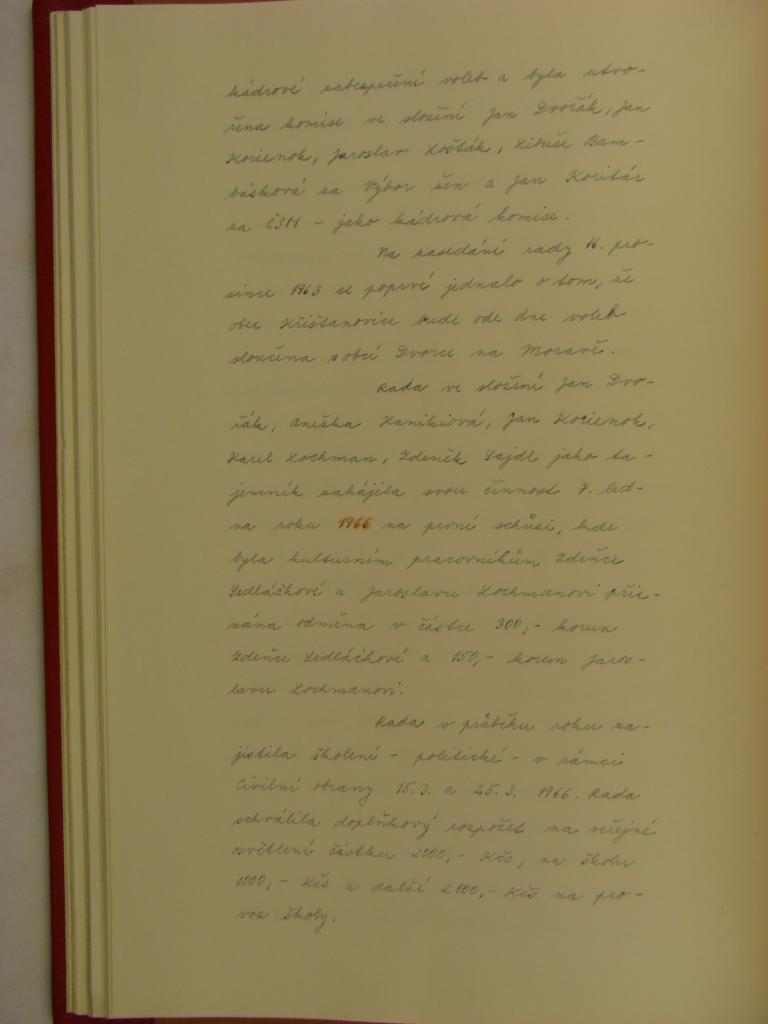 kádrové zabezpečení voleb a byla utvo-
řena komise ve složení Jan Dvořák, Jan
Korienok, Jaroslav Košťák, Libuše Bam-
básková za Výbor žen a Jan Koritár
za ČSM - jako kádrová komise.
Na zasedání rady 16. pro-
since 1963 se poprvé jednalo o tom, že
obec Křišťanovice bude ode dne voleb
sloučena s obcí Dvorce na Moravě.
Rada ve složení Jan Dvo-
řák, Anežka Hanikiová, Jan Korienok,
Karel Lochman, Zdeněk Sajdl jako ta-
jemník zahájila svou činnost 7. led-
na roku 1966 na první schůzi, kde
byla kulturním pracovníkům Zdeňce
Sedláčkové a Jaroslavu Lochmanovi přiz-
nána odměna v částce 300,- korun
Zdeňce Sedláčkové a 150,- korun Jaros-
lavu Lochmanovi.
Rada v průběhu roku za-
jistila školení - politické - v rámci
Civilní obrany 15.3. a 25.3. 1966. Rada
schválila doplňkový rozpočet na veřejné
osvětlení částku 2000,- Kčs, na školu
1000,- Kčs a další 2000,- Kčs na pro-
voz školy.